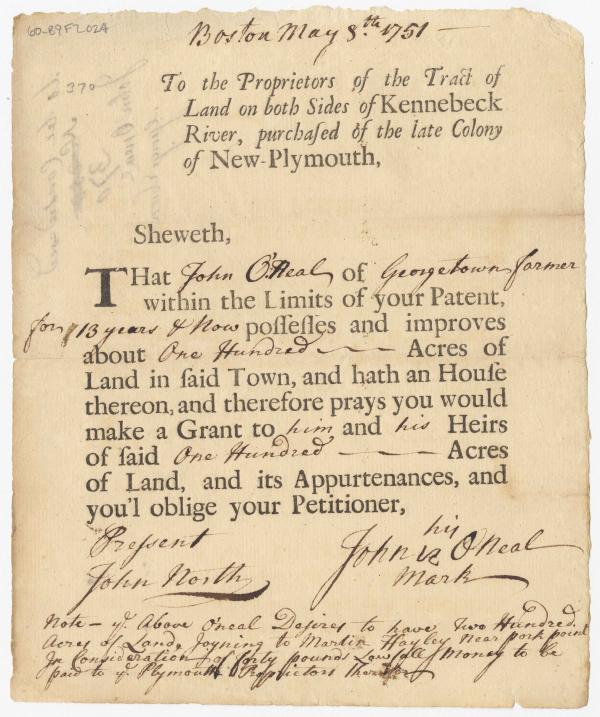 60-89F2024
Boston May 8.th 1751
370
To the Proprietors of the Tract of
Land on both Sides of Kennebeck
River, purchaſed of the late Colony
of New-Plymouth,
Sheweth,
THat John O'Neal of Georgetown farmer
within the Limits of your Patent,
for 13 years & Now poſſeſſes and improves
about One Hundred Acres of
Land in ſaid Town, and hath an Houſe
thereon, and therefore prays you would
make a Grant to him and his Heirs
of ſaid One Hundred Acres
of Land, and its Appurtenances, and
you'l oblige your Petitioner,
Present
John North
his
John O'Neal
Mark
Note – ye Above O'neal Desires to have Two Hundred
Acres of Land, Joyning to Martin Hayley Near pork point
In Consideration of forty pounds Lawfull Money to be
paid to ye Plymouth Proprietors Therefor